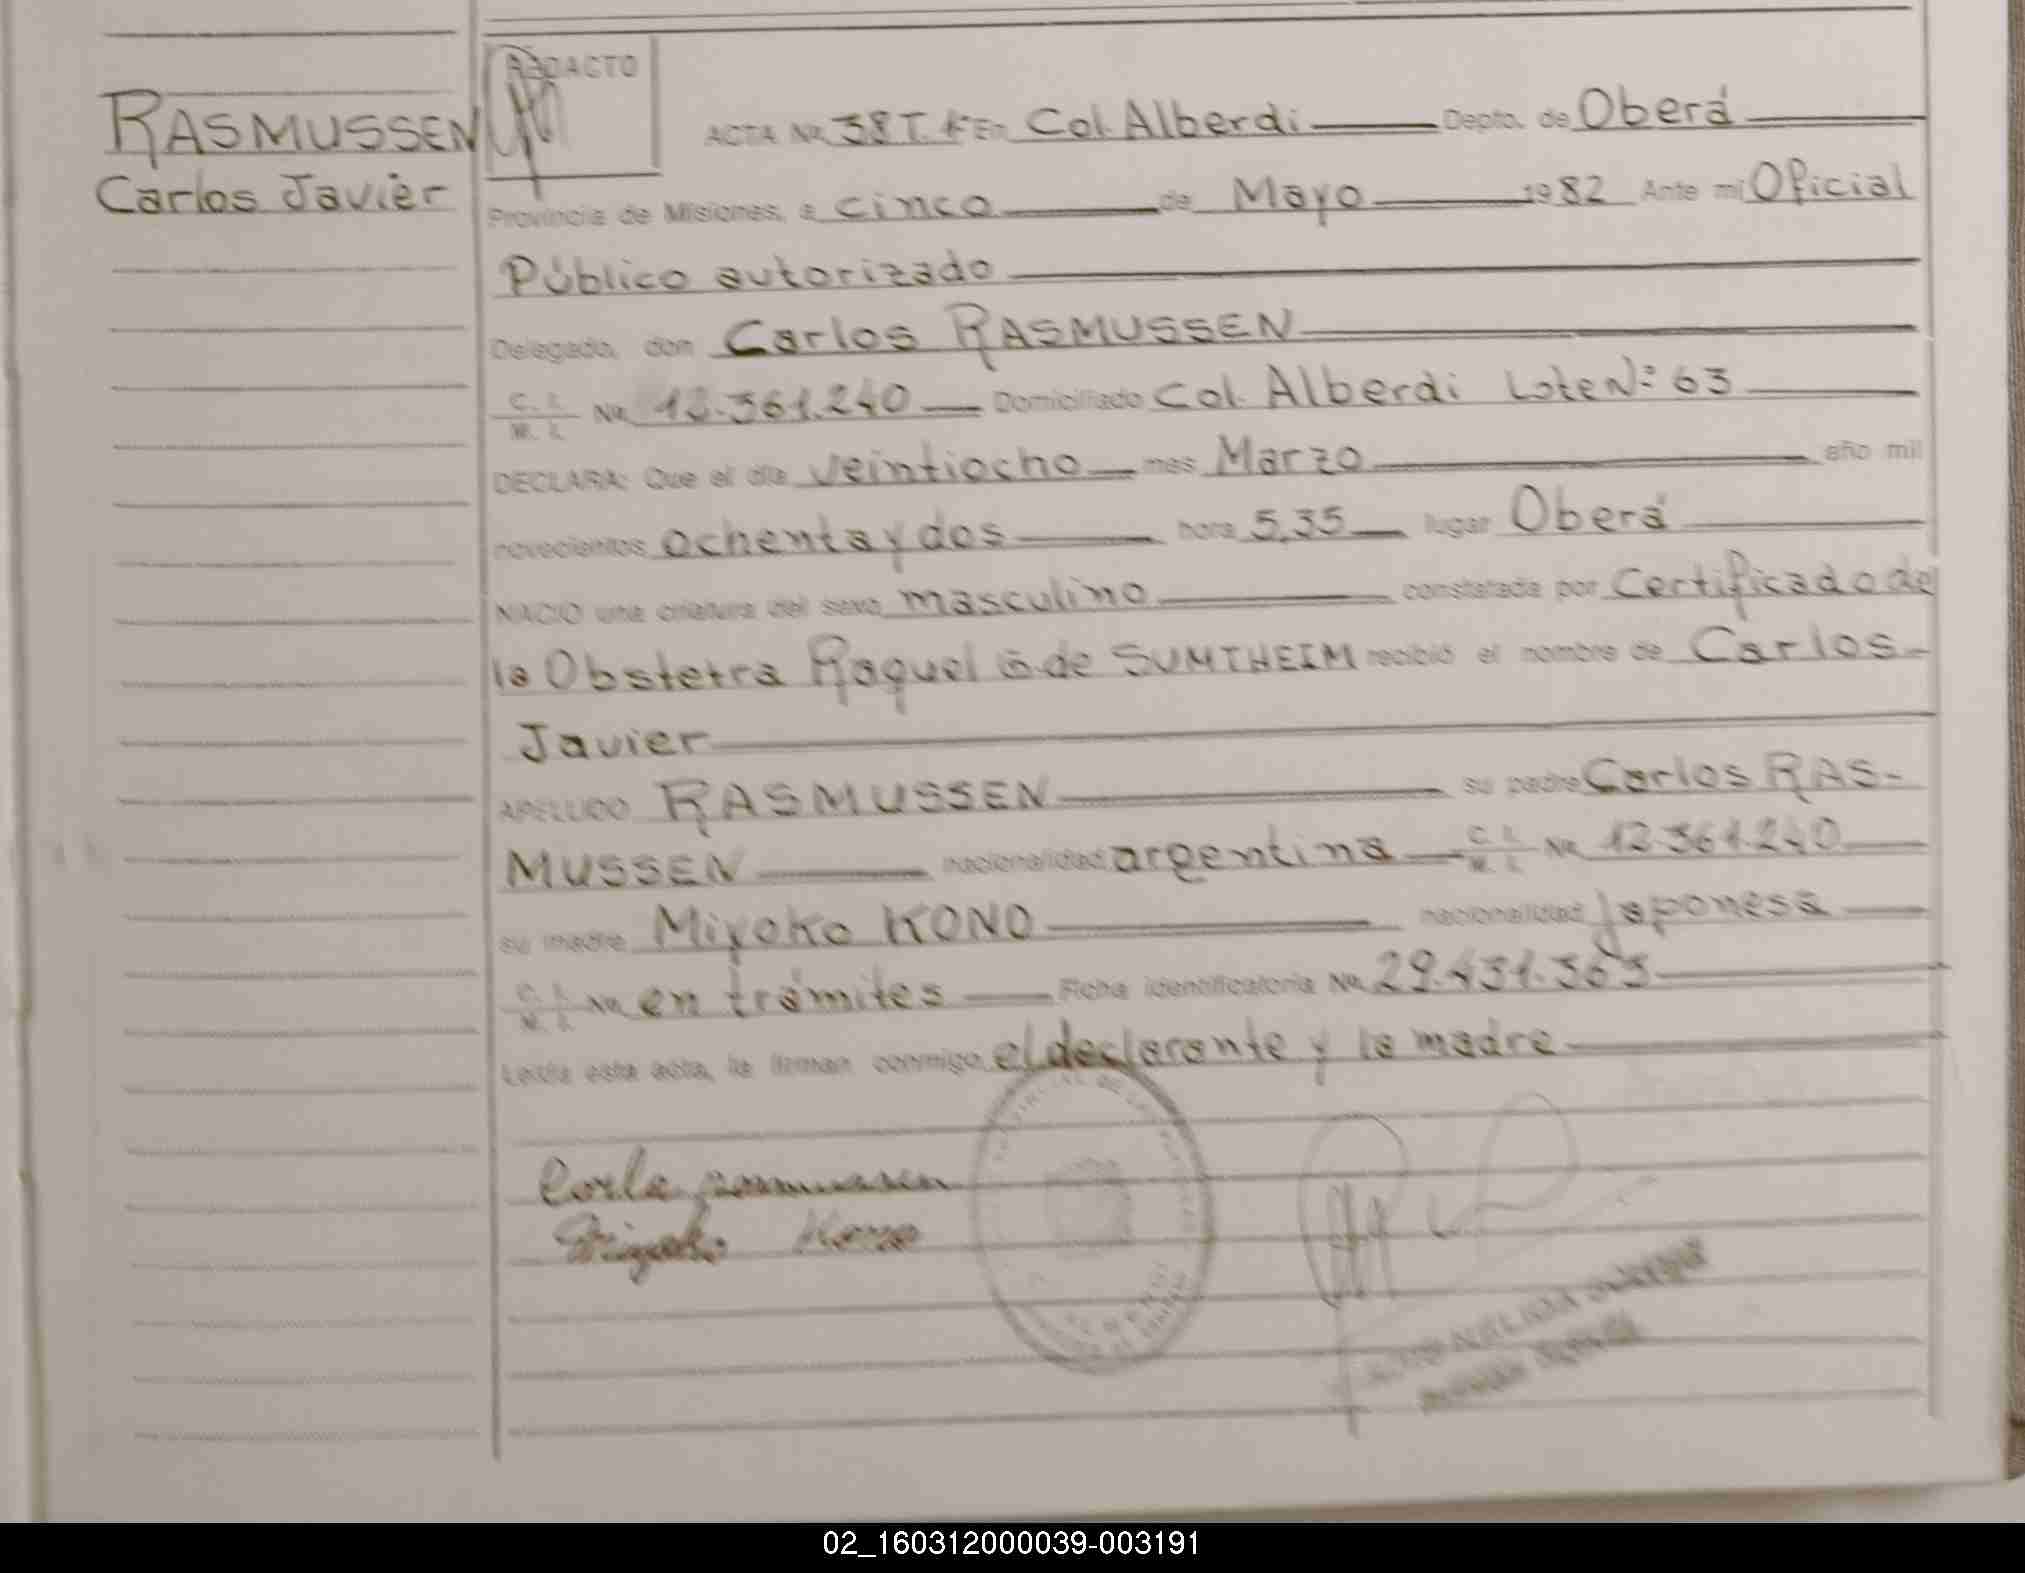 REDACTO
RASMUSSEN
Carlos Javier
ACTA No. 38 T. En Col. Alberdi Depto. de Oberá
Provincia de Misiones, a cinco de Mayo 1982 Ante mi Oficial
Público autorizado
Delegado, don Carlos RASMUSSEN
C. I. M. I. No. 12.361.240 Domiciliado Col. Alberdi Lote Nº 63
DECLARA: Que el día veintiocho mes Marzo año mil
novecientos ochenta y dos hora 5,35 lugar Oberá
NACIO una criatura del sexo masculino constatada por Certificado de
la Obstetra Raquel G. de SUMTHEIM recibió el nombre de Carlos
Javier
APELLIDO RASMUSSEN su padre Carlos RAS-
MUSSEN nacionalidad argentina C. I. M. I. No. 12.361.240
su madre Miyoko KONO nacionalidad Japonesa
C. I. M. I. No. en trámites Ficha identificatoria No. 29.431.363
Leída esta acta, la firman conmigo el declarante y la madre
Miyoko Kono
02_160312000039-003191